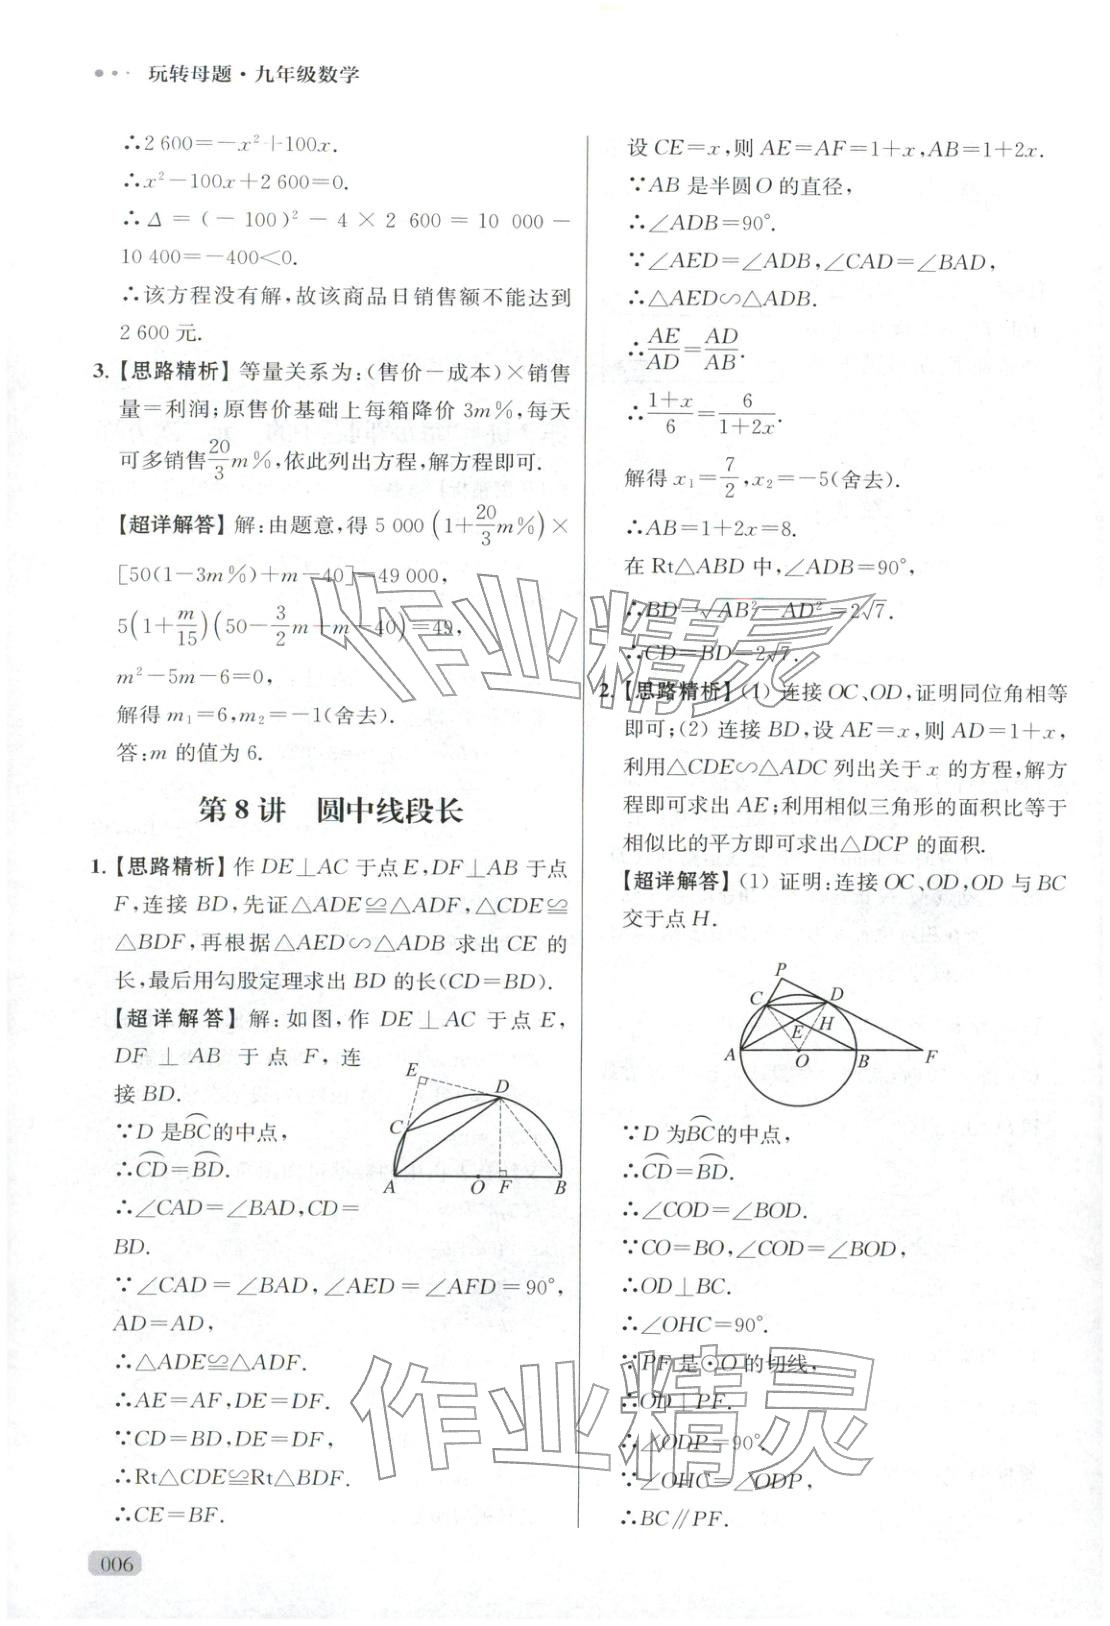 玩转母题·九年级数学
∴2 600=-x²+100x.
∴x²-100x+2 600=0.
∴Δ=(-100)²-4×2 600=10 000-
10 400=-400<0.
∴该方程没有解,故该商品日销售额不能达到
2 600 元.
3.【思路精析】等量关系为:(售价-成本)×销售
量=利润;原售价基础上每箱降价 3m%,每天
可多销售20/3m%,依此列出方程,解方程即可.
【超详解答】解:由题意,得 5 000(1+20/3m%)×
[50(1-3m%)+m-40]=49 000,
5(1+m/15)(50-3/2m+m-40)=49,
m²-5m-6=0,
解得 m₁=6,m₂=-1(舍去).
答:m 的值为 6.
第 8 讲 圆中线段长
1.【思路精析】作 DE⊥AC 于点E,DF⊥AB 于点
F,连接 BD,先证△ADE≌△ADF,△CDE≌
△BDF,再根据△AED∽△ADB 求出 CE 的
长,最后用勾股定理求出 BD 的长(CD=BD).
【超详解答】解:如图,作 DE⊥AC 于点 E,
DF⊥AB 于点 F,连
接 BD.
E
D
C
A
O
F
B
∵D 是BC⌒的中点,
∴CD⌒=BD⌒.
∴∠CAD=∠BAD,CD=
BD.
∵∠CAD=∠BAD,∠AED=∠AFD=90°,
AD=AD,
∴△ADE≌△ADF.
∴AE=AF,DE=DF.
∵CD=BD,DE=DF,
∴Rt△CDE≌Rt△BDF.
∴CE=BF.
设 CE=x,则 AE=AF=1+x,AB=1+2x.
∵AB 是半圆O 的直径,
∴∠ADB=90°.
∵∠AED=∠ADB,∠CAD=∠BAD,
∴△AED∽△ADB.
∴AE/AD=AD/AB.
∴(1+x)/6=6/(1+2x).
解得 x₁=7/2,x₂=-5(舍去).
∴AB=1+2x=8.
在 Rt△ABD 中,∠ADB=90°,
∴BD=√(AB²-AD²)=2√7.
∴CD=BD=2√7.
2.【思路精析】(1) 连接 OC、OD,证明同位角相等
即可;(2) 连接 BD,设 AE=x,则 AD=1+x,
利用△CDE∽△ADC 列出关于 x 的方程,解方
程即可求出 AE;利用相似三角形的面积比等于
相似比的平方即可求出△DCP 的面积.
【超详解答】(1) 证明:连接 OC、OD,OD 与 BC
交于点 H.
P
C
D
E
H
A
O
B
F
∵D 为BC⌒的中点,
∴CD⌒=BD⌒.
∴∠COD=∠BOD.
∵CO=BO,∠COD=∠BOD,
∴OD⊥BC.
∴∠OHC=90°.
∵PF 是⊙O 的切线,
∴OD⊥PF.
∴∠ODP=90°.
∵∠OHC=∠ODP,
∴BC∥PF.
作业精灵
作业精灵
006